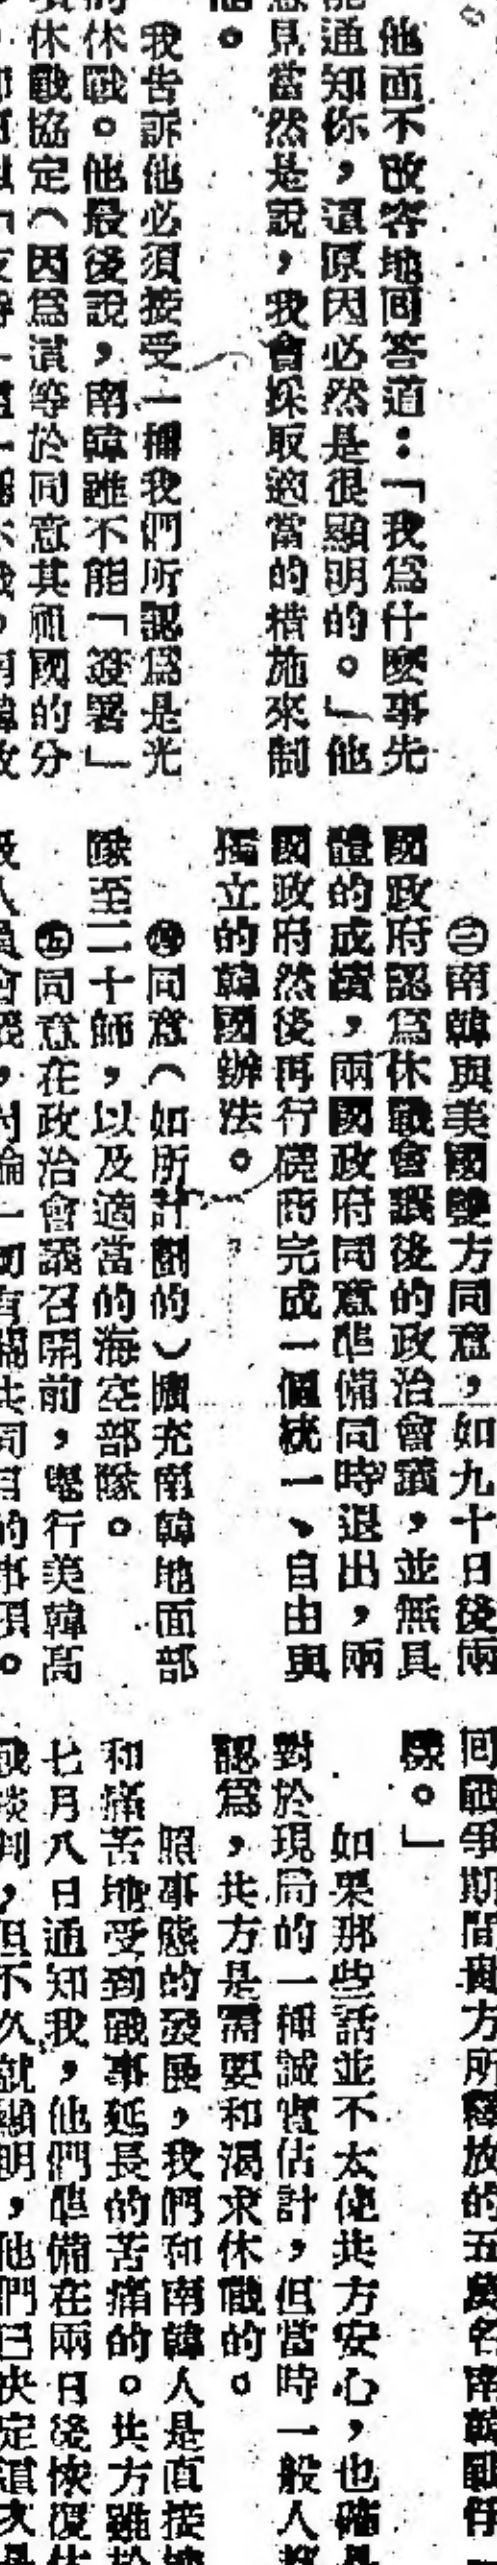 他面不改容地回答道：「我爲什麽事先
能通知你，這原因必然是很顯明的。」他
意見當然是說，我會採取適當的措施來制
他。
我告訴他必須接受一種我們所認爲是光
的休戰。他最後說，南韓雖不能「簽署」
項休戰協定（因爲這等於同意其祖國的分
㊂南韓與美國雙方同意，如九十日後兩
國政府認爲休戰會議後的政治會議，並無具
體的成績，兩國政府同意準備同時退出，兩
國政府然後再行磋商完成一個統一、自由與
獨立的韓國辦法。
㊃同意（如所計劃的）擴充南韓地面部
隊至二十師，以及適當的海空部隊。
㊄同意在政治會議召開前，舉行美韓高
級人員會議，討論一切有關共同目的事項。
回戰爭期間貴方所釋放的五萬名南韓戰俘
樣。」
如果那些話並不太使共方安心，也確是
對於現局的一種誠實估計，但當時一般人都
認爲，共方是需要和渴求休戰的。
照事態的發展，我們和南韓人是直接
和痛苦地受到戰事延長的苦痛的。共方雖於
七月八日通知我，他們準備在兩日後恢復休
戰談判，但不久就顯明，他們已決定這次是